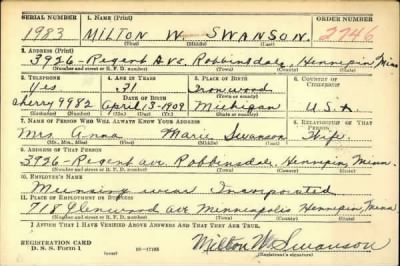 SERIAL NUMBER 1. NAME (Print) ORDER NUMBER (Print)
1983 MILTON W. SWANSON 2746
(First) (Middle) (Last)
2. ADDRESS (Print)
3926 - Regent Ave. Robbinsdale, Hennepin, Minn
(Number and street or R. F. D. number) (Town) (County) (State)
3. TELEPHONE 4. AGE IN YEARS 5. PLACE OF BIRTH 6. COUNTRY OF CITIZENSHIP
Yes 31 Ironwood
DATE OF BIRTH (Town or county)
Cherry 9982 April-3-1909 Michigan U.S.A
(Exchange) (Number) (Mo.) (Day) (Yr.) (State or country)
7. NAME OF PERSON WHO WILL ALWAYS KNOW YOUR ADDRESS 8. RELATIONSHIP OF THAT PERSON
Mrs. Anna Marie Swanson Wife.
(Mr., Mrs., Miss) (First) (Middle) (Last)
9. ADDRESS OF THAT PERSON
3926 - Regent ave. Robbinsdale, Hennepin, Minn.
(Number and street or R. F. D. number) (Town) (County) (State)
10. EMPLOYER'S NAME
Munsing wear Incorporated
11. PLACE OF EMPLOYMENT OR BUSINESS
718 Glenwood ave Minneapolis Hennepin, Minn
(Number and street or R. F. D. number) (Town) (County) (State)
I AFFIRM THAT I HAVE VERIFIED ABOVE ANSWERS AND THAT THEY ARE TRUE.
REGISTRATION CARD
D. S. S. Form 1 (over) 16-17105 Milton W. Swanson
(Registrant's signature)